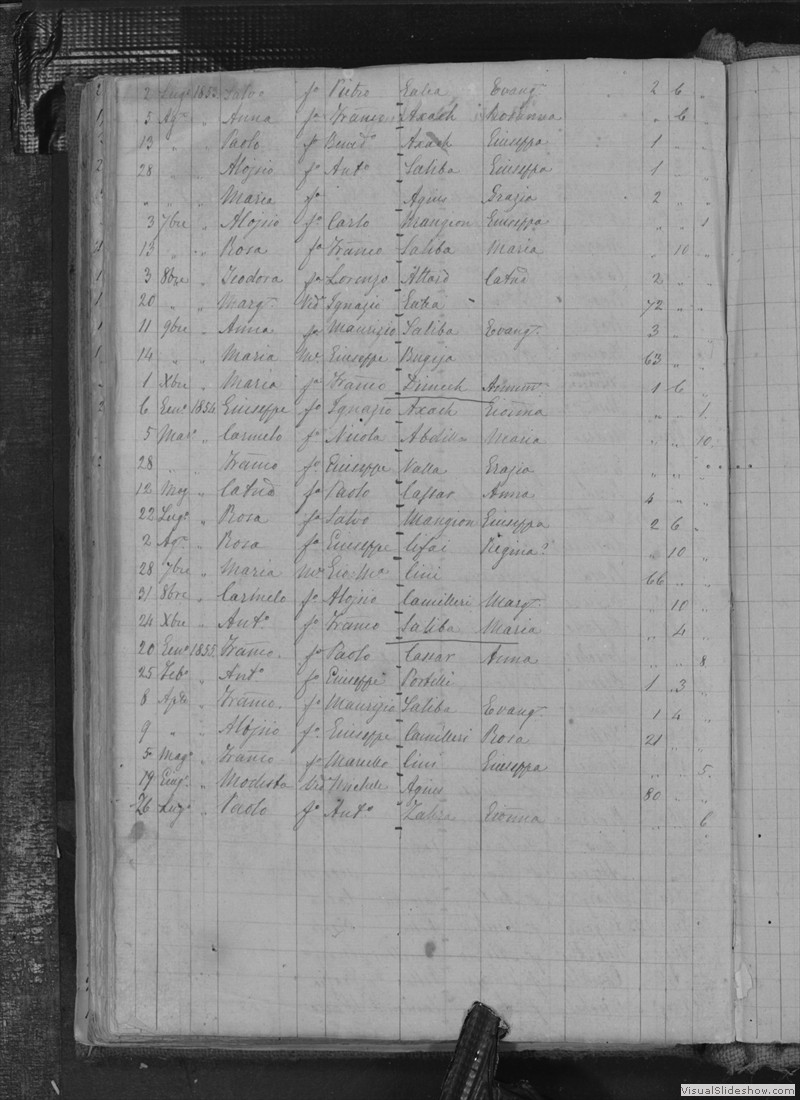 2 Lug° 1853 Salvo f° Pietro Eutia Evang 2 6
5 Ag° " Anna f° Franco Axiach Rosanna " 6
13 " " Paolo f° Bened° Axiach Giuseppa 1 "
28 " " Alojsio f° Ant° Saliba Giuseppa 1 "
" " " Maria f° Agius Grazia 2 "
3 7bre " Alojsio f° Carlo Mangion Giuseppa " " 1
13 " " Rosa f° Franco Saliba Maria " 10 "
3 8bre " Teodora f° Lorenzo Attard Catnã 2 " "
20 " " Marg Vid Ignazio Eutia 72 " "
11 9bre " Anna f° Maurizio Saliba Evang. 3 " "
14 " " Maria Me Giuseppe Bugeja 63 " "
1 Xbre " Maria f° Franco Zrinech 1 6 "
6 Gen° 1854 Giuseppe f° Ignazio Axiach Gionna " " 1
5 Mar° " Carmelo f° Nicola Abdilla Maria " " 10
28 " " Franco f° Giuseppe Valla Grazia " " "
12 Mag " Catnã f° Paolo Cassar Anna 4 " "
22 Lug° " Rosa f° Salvo Mangion Giuseppa 2 6 "
2 Ag. " Rosa f° Giuseppe Cifai Regina? " 10 "
28 7bre " Maria Me Gio Ma Cini 66 " "
31 8bre " Carmelo f° Alojsio Camilleri Marg " 10 "
24 Xbre " Ant° f° Franco Saliba Maria " 4 "
20 Gen° 1855 Franco. f° Paolo Cassar Anna " " 8
25 Feb° " Ant° f° Giuseppe Portelli 1 3 "
8 Aple " Franco. f° Maurizio Saliba Evang 1 4 "
9 " " Alojsio f° Giuseppe Camilleri Rosa 21 " "
5 Mag° " Franco f° Marcello Cini Giuseppa " " 5
19 Giug° " Modesta Vid Michele Agius 80 " "
26 Lug° " Paolo f° Ant° Zabra Gionna " " 6
VisualSlideshow.com